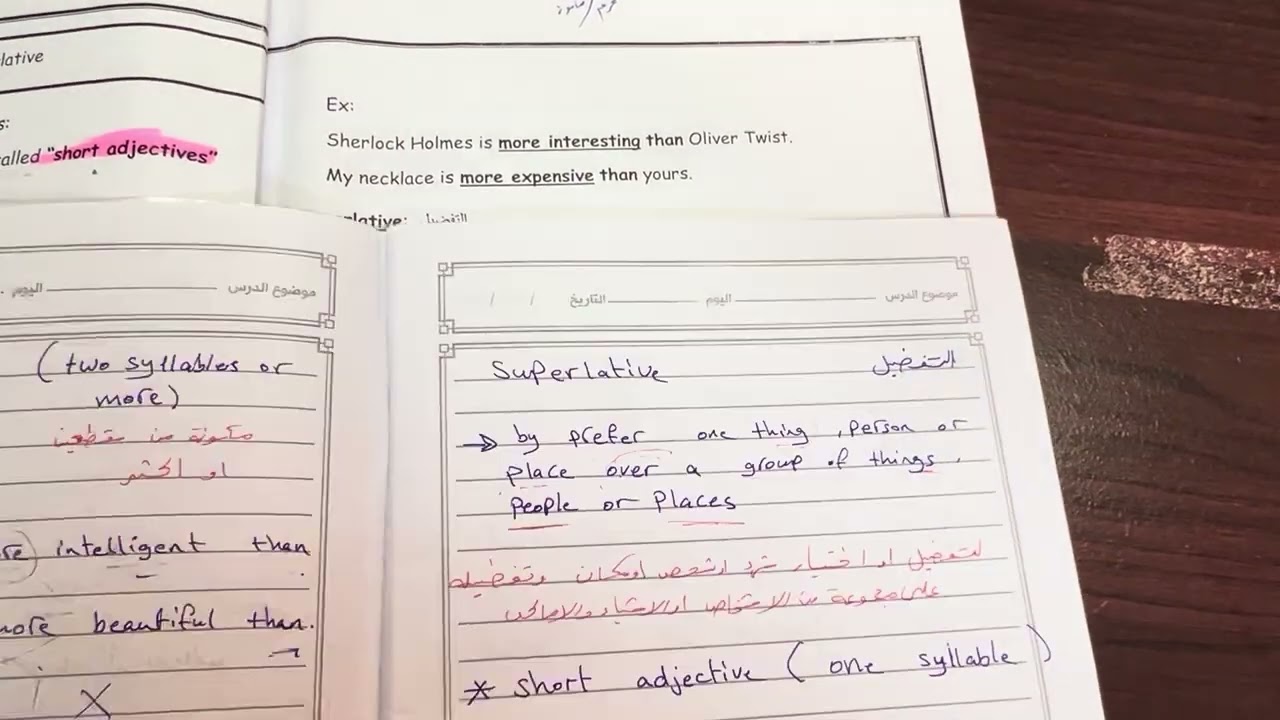 lative
s:
alled "short adjectives"
Ex:
Sherlock Holmes is more interesting than Oliver Twist.
My necklace is more expensive than yours.
lative:
موضوع الدرس اليوم
(two syllables or
more)
مكونة من مقطعين
او اكثر
re intelligent than
more beautiful than.
X
موضوع الدرس اليوم التاريخ / /
Superlative التفضيل
by prefer one thing, person or
place over a group of things,
people or Places
لتفضيل او اختيار شيء او شخص او مكان وتفضيله
على مجموعة من الاشخاص او الاشياء والاماكن
* short adjective (one syllable)